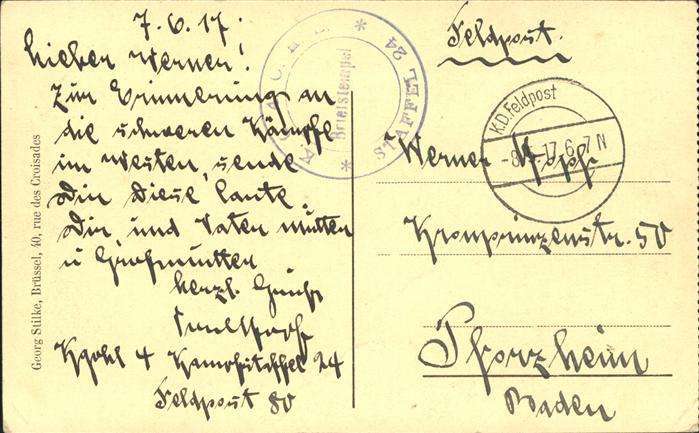 7.6.17.
Lieber Werner!
Zur Erinnerung an
die schweren Kämpfe
im Westen, sende
Dir Diese Karte.
Dir, und Vater Mutter
u Großmutter
herzl. Grüße
4 Kampfstaffel 24
Feldpost 80
Georg Stilke, Brüssel, 40, rue des Croisades
Briefstempel
STAFFEL 24
Feldpost.
K.D.Feldpost
17.6. 7 N
Werner
Kronprinzenstr. 50
Pforzheim
Baden